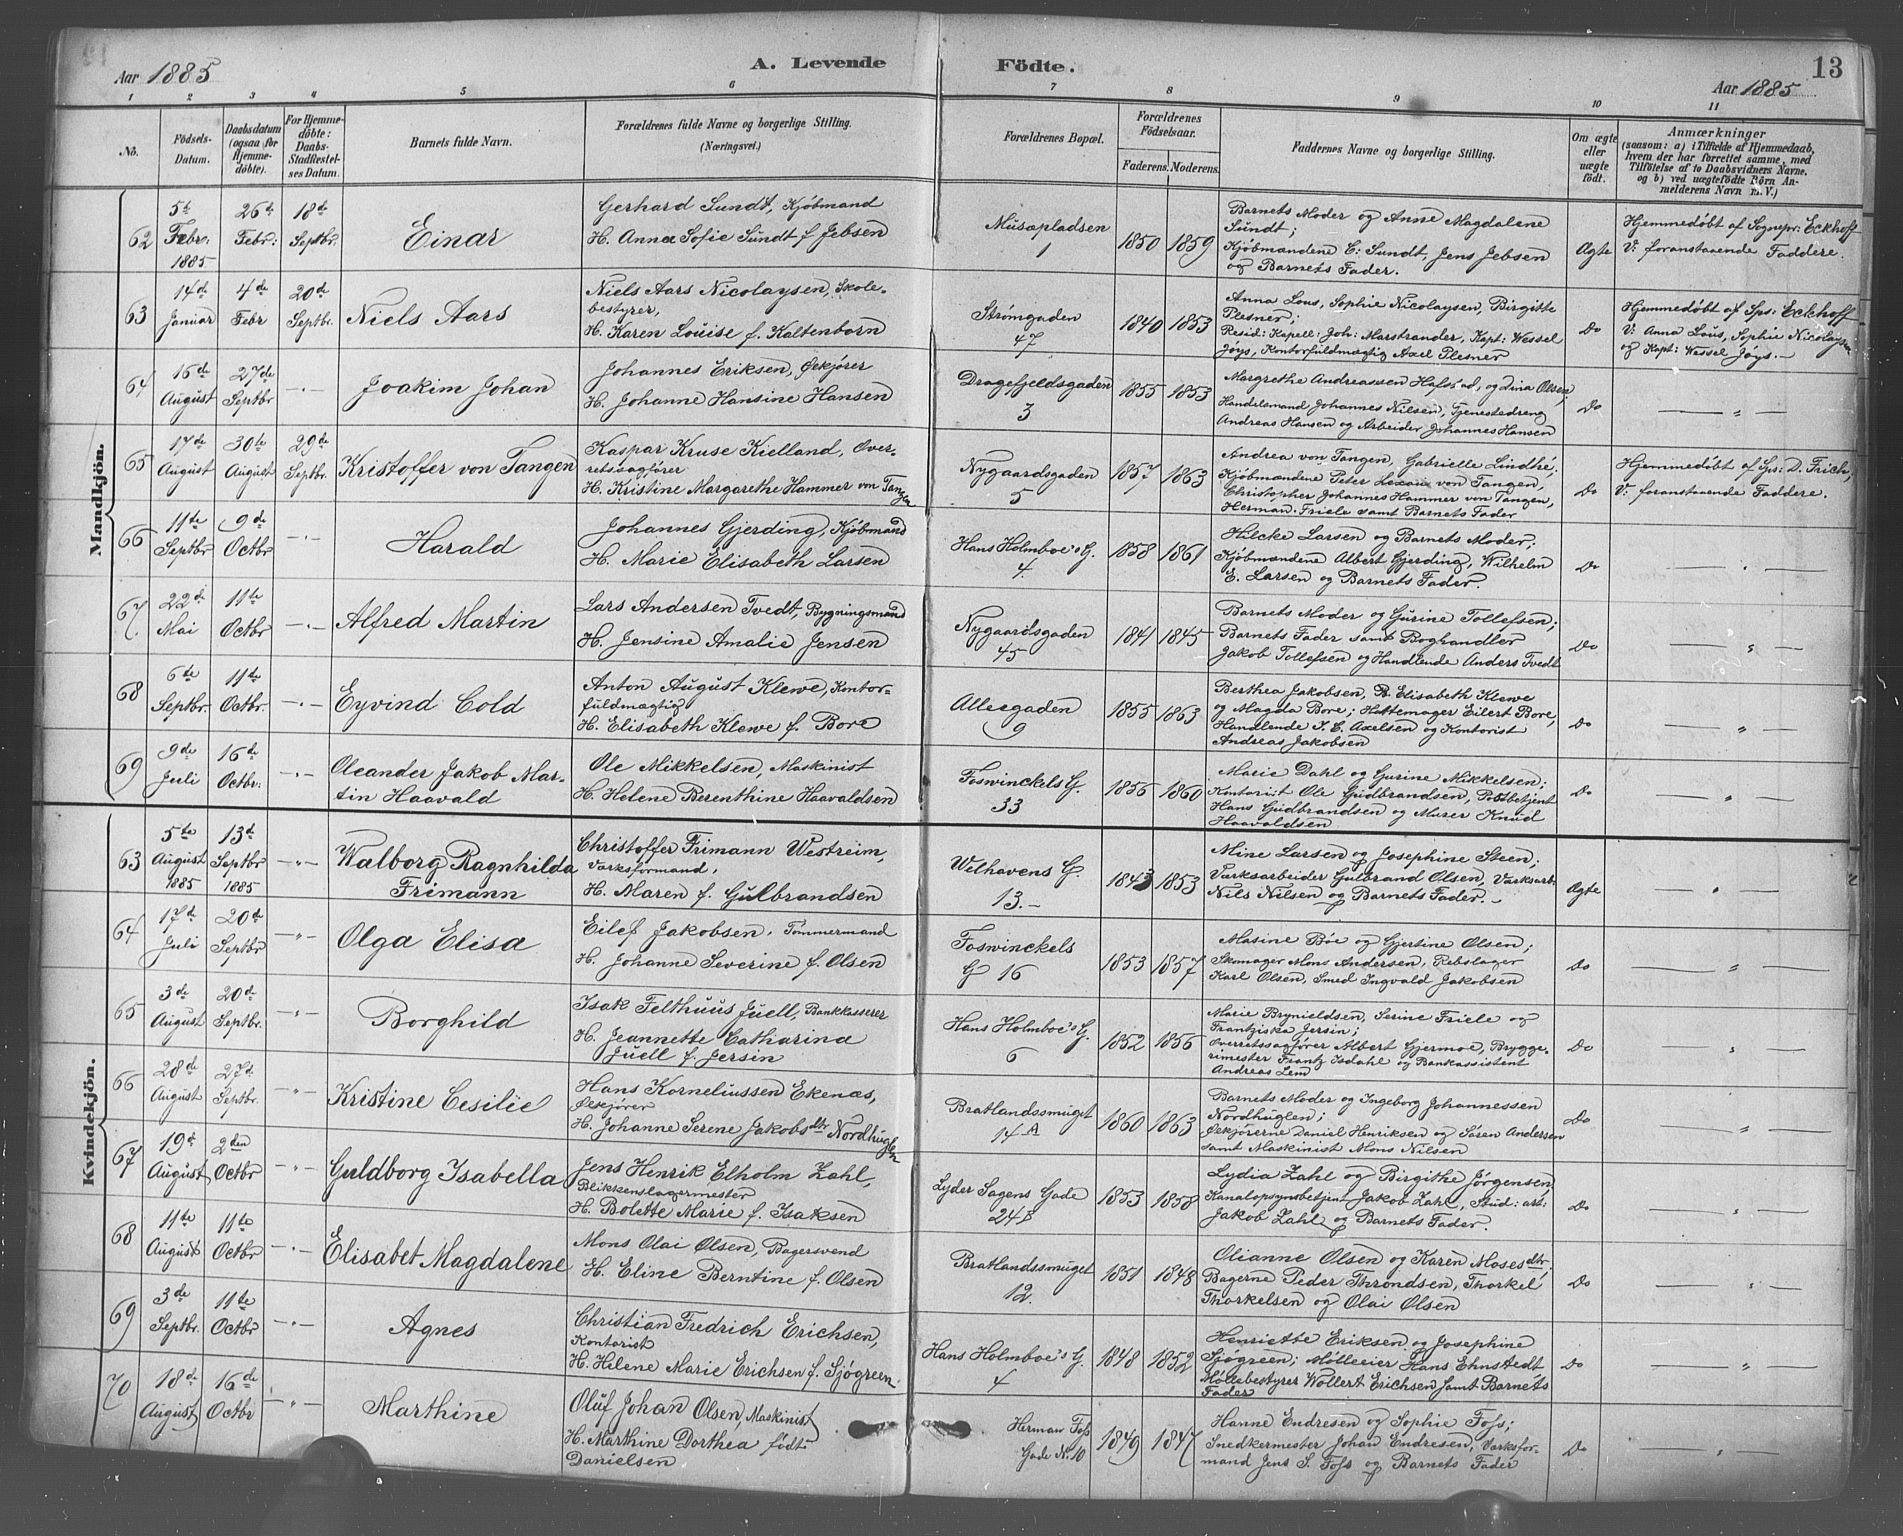 Aar 1885 A. Levende Födte. Aar 1885 13
1 2 3 4 5 6 7 8 9 10 11
No.
Födsels-Datum.
Daabsdatum (ogsaa for Hjemmedöbte).
For Hjemmedöbte: Daabs-Stadfæstelses Datum.
Barnets fulde Navn.
Forældrenes fulde Navne og borgerlige Stilling. (Næringsvei.)
Forældrenes Bopæl.
Forældrenes Födselsaar.
Faderens. Moderens.
Faddernes Navne og borgerlige Stilling.
Om ægte eller uægte födt.
Anmærkninger
(saasom: a) i Tilfælde af Hjemmedaab, hvem der har forrettet samme, med Tilföielse af to Daabsvidners Navne, og b) ved uægtefödte Börn Anmelderens Navn m. V.)
Mandkjön.
62 5te Febr: 1885 26de Febr: 18de Septbr. Einar
Gerhard Sundt, Kjøbmand
H. Anna Sofie Sundt f Jebsen
Musæpladsen 1 1850 1859
Barnets Moder og Anne Magdalene
Sundt;
Kjøbmændene C. Sundt, Jens Jebsen
og Barnets Fader.
Ægte
Hjemmedøbt af Sognepr: Eckhoff
V: foranstaaende Faddere.
63 14de Januar 4de Febr 20de Septbr. Niels Aars
Niels Aars Nicolaysen, Skole-
bestyrer,
H. Karen Louise f. Kaltenborn
Strømgaden 47 1840 1853
Anna Lous, Sophie Nicolaysen, Birgitte
Plesner;
Resid: Kapell: Joh: Marstrander, Kapt: Wessel
Jøys, Kontorfuldmægtig Axel Plesner
Do
Hjemmedøbt af Sps: Eckhoff
V: Anna Lous, Sophie Nicolaysen
og Kapt: Wessel Jøys.-
64 16de August 27de Septbr - . - Joakim Johan
Johannes Eriksen, Øekjører
H. Johanne Hansine Hansen
Dragefjeldsgaden 3 1855 1853
Margrethe Andreassen Hafstad, og Dina Olsen,
Handelsmand Johannes Nilsen, Tjenestedreng
Andreas Hansen og Arbeider Johannes Hansen
Do — " —
65 17de August 30te August 29de Septbr. Kristoffer von Tangen
Kaspar Kruse Kielland, Over-
retssagfører
H. Kristine Margarethe Hammer von Tangen
Nygaardsgaden 5 1857 1863
Andrea von Tangen, Gabrielle Lindhé;
Kjøbmændene Peter von Tangen,
Christopher Johannes Hammer von Tangen,
Herman Friele samt Barnets Fader
Do
Hjemmedøbt af Sps: D. Frich,
V: foranstaaende Faddere.
66 11te Septbr 9de Octbr - . - Harald
Johannes Gjerding, Kjøbmand
H. Marie Elisabeth Larsen
Hans Holmboe's G. 4. 1858 1861
Hilcke Larsen og Barnets Moder;
Kjøbmændene Albert Gjerding, Wilhelm
E. Larsen og Barnets Fader.
Do — " —
67. 22de Mai 11te Octbr - . - Alfred Martin
Lars Andersen Tvedt, Bygningsmand
H. Jensine Amalie Jensen
Nygaardsgaden 45 1841 1845
Barnets Moder og Gurine Tollefsen;
Barnets Fader samt Boghandler
Jakob Tollefsen og Handlende Anders Tvedt
Do — " —
68 6te Septbr. 11te Octbr. - . - Eyvind Cold
Anton August Klewe, Kontor-
fuldmægtig
H. Elisabeth Klewe f. Bore
Alleegaden 9 1855 1863
Berthea Jakobsen, B. Elisabeth Klewe
og Magda Bore; Hattemager Eilert Bore,
Handlende J. C. Axelsen og Kontorist
Andreas Jakobsen
Do — " —
69 9de Juli 16te Octbr: - . - Oleander Jakob Mar-
tin Haavald
Ole Mikkelsen, Maskinist
H. Helene Berenthine Haavaldsen
Foswinckels G. 33 1856 1860
Marie Dahl og Gurine Mikkelsen;
Kontorist Ole Gudbrandsen, Postbetjent
Hans Gudbrandsen og Murer Knud
Haavaldsen
Do — " —
Kvindekjön.
63 5te August 1885 13de Septbr 1885 - " - Walborg Ragnhilda
Frimann
Christoffer Frimann Westreim,
Værksformand,
H. Maren f. Gulbrandsen
Welhavens G. 13.- 1843 1853
Mine Larsen og Josephine Steen;
Værksarbeider Gulbrand Olsen, Værksarb.
Nils Nilsen og Barnets Fader.-
Ægte "
64 17de Juli 20de Septbr - " - Olga Elisa
Eilef Jakobsen, Tømmermand
H. Johanne Severine f. Olsen
Foswinckels G 16 1853 1857
Masine Bøe og Gjertine Olsen;
Skomager Mons Andersen, Rebslager
Karl Olsen, Smed Ingvald Jakobsen
Do — " —
65 3de August 20de Septbr. - " - Borghild
Isak Felthuus Juell, Bankkasserer
H. Jeannette Catharina
Juell f. Jersin
Hans Holmboe's G. 6 1852 1856
Marie Brynieldsen, Serine Friele og
Frantziska Jersin;
Overretssagfører Albert Gjermoe, Brygge-
rimester Frantz Isdahl og Bankassistent
Andreas Lem
Do "
66 28de August 27de Septbr. - " - Kristine Cesilie
Hans Korneliussen Ekenæs,
Øekjører
H. Johanne Serene Jakobsdtr Nordhuglen
Bratlandssmuget 14 A 1860 1863
Barnets Moder og Ingeborg Johannessen
Nordhuglen;
Øekjørerne Daniel Henriksen og Søren Andersen
samt Maskinist Mons Nilsen
Do — " —
67 19de August 2den Octbr - " - Guldborg Isabella
Jens Henrik Elholm Zahl,
Blikkenslagermester
H. Bolette Marie f. Isaksen
Lyder Sagens Gade 24 B 1853 1858
Lydia Zahl og Birgithe Jørgensen
Kanalopsynsbetjent Jakob Zahl, Stud: art:
Jakob Zahl og Barnets Fader.
Do — " —
68 11te August 11te Octbr - " - Elisabet Magdalene
Mons Olai Olsen, Bagersvend
H. Eline Berntine f. Olsen
Bratlandssmuget 12. 1851 1848
Olianne Olsen og Karen Mosesdtr.
Bagerne Peder Throndsen, Thorkel
Thorkelsen og Olai Olsen
Do — " —
69 3de Septbr. 11te Octbr - " - Agnes
Christian Fredrich Erichsen,
Kontorist
H. Helene Marie Erichsen f. Sjøgreen.
Hans Holmboe's G. 4 1848 1852
Henriette Eriksen og Josephine
Sjøgreen; Mølleeier Hans Ehnstedt
Møllebestyrer Wollert Erichsen samt Barnets
Fader
Do — " —
70 18de August 16de Octbr - " - Marthine
Oluf Johan Olsen, Maskinist
H. Marthine Dorthea født
Danielsen
Herman Foss Gade N. 10 1849 1847
Hanne Endresen og Sophie Foss;
Snedkermester Johan Endresen, Værksfor-
mand Jens S. Foss og Barnets Fader
Do — " —